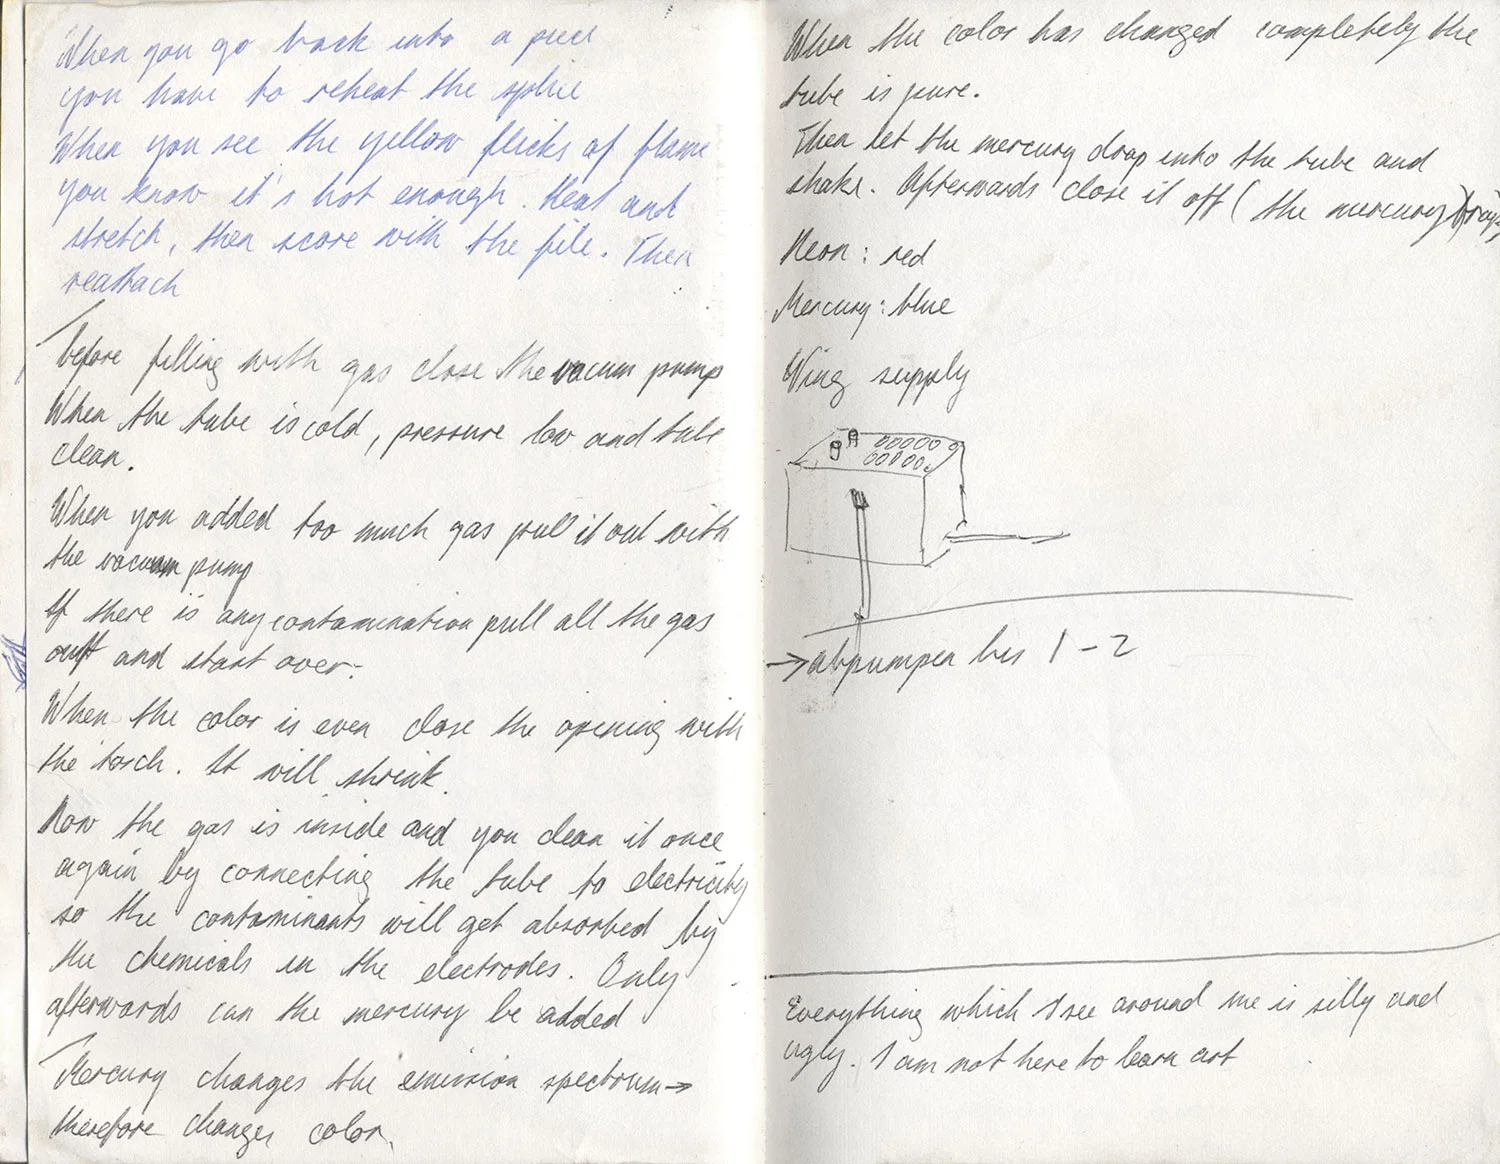 When you go back into a piece
you have to reheat the splice
When you see the yellow flicks of flame
you know it's hot enough. Heat and
stretch, then score with the file. Then
reattach
before filling with gas close the vacuum pump
When the tube is cold, pressure low and tube
clean.
When you added too much gas pull it out with
the vacuum pump
If there is any contamination pull all the gas
out and start over.
When the color is even close the opening with
the torch. It will shrink.
Now the gas is inside and you clean it once
again by connecting the tube to electricity
so the contaminants will get absorbed by
the chemicals in the electrodes. Only
afterwards can the mercury be added
Mercury changes the emission spectrum →
therefore changes color.
When the color has changed completely the
tube is pure.
Then let the mercury drop into the tube and
shake. Afterwards close it off ( the mercury
Neon: red
Mercury: blue
supply
→ abpumpen bis 1-2
Everything which I see around me is silly and
ugly. I am not here to learn art